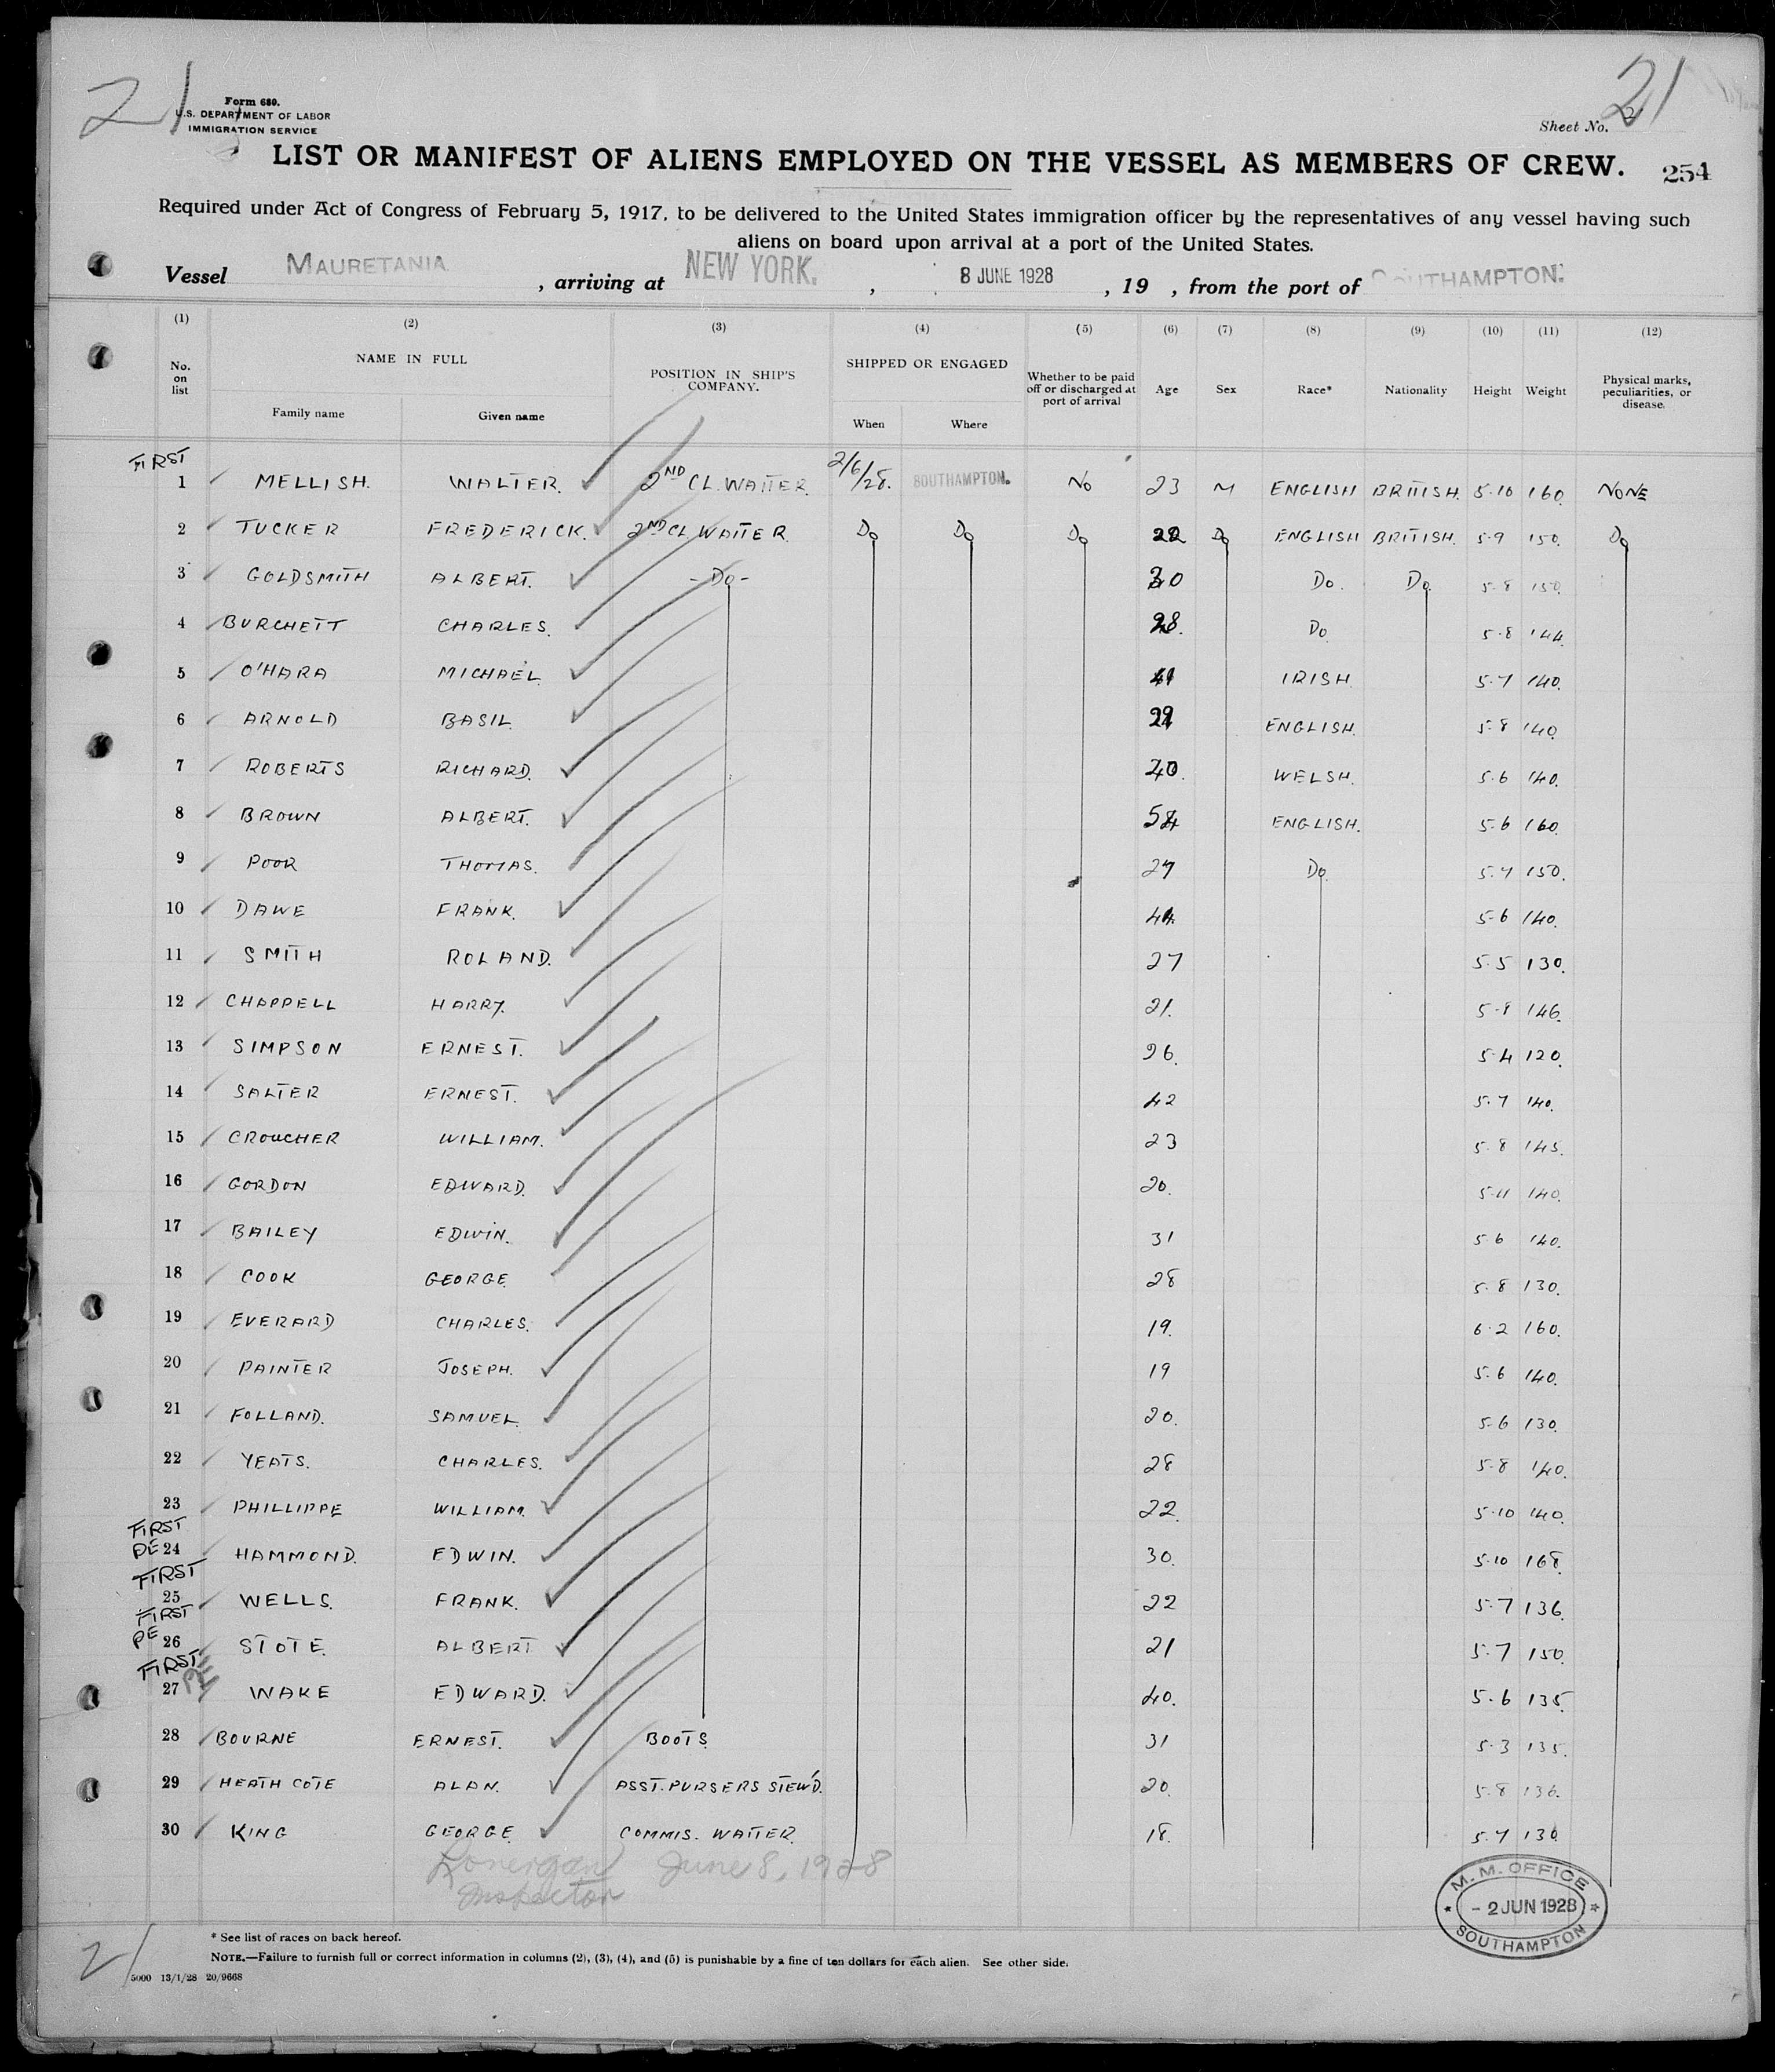 21
21
Form 680.
U.S. DEPARTMENT OF LABOR
IMMIGRATION SERVICE
Sheet No.
LIST OR MANIFEST OF ALIENS EMPLOYED ON THE VESSEL AS MEMBERS OF CREW. 254
Required under Act of Congress of February 5, 1917, to be delivered to the United States immigration officer by the representatives of any vessel having such
aliens on board upon arrival at a port of the United States.
Vessel MAURETANIA, arriving at NEW YORK., 8 JUNE 1928, 19 , from the port of SOUTHAMPTON.
(1) (2) (3) (4) (5) (6) (7) (8) (9) (10) (11) (12)
No. on list NAME IN FULL POSITION IN SHIP'S COMPANY. SHIPPED OR ENGAGED Whether to be paid off or discharged at port of arrival Age Sex Race* Nationality Height Weight Physical marks, peculiarities, or disease.
Family name Given name When Where
FIRST
1 MELLISH. WALTER. 2ND CL. WAITER. 2/6/28. SOUTHAMPTON. NO 23 M ENGLISH BRITISH. 5.10 160. NONE
2 TUCKER FREDERICK. 2ND CL WAITER. Do Do Do 22 Do ENGLISH BRITISH. 5.9 150. Do
3 GOLDSMITH ALBERT. -Do- 30 Do. Do. 5.8 150.
4 BURCHETT CHARLES. 28. Do. 5.8 144.
5 O'HARA MICHAEL. 41 IRISH. 5.7 140.
6 ARNOLD BASIL. 29 ENGLISH. 5.8 140.
7 ROBERTS RICHARD. 40. WELSH. 5.6 140.
8 BROWN ALBERT. 54 ENGLISH. 5.6 160.
9 POOR THOMAS. 27 Do. 5.7 150.
10 DAWE FRANK. 44. 5.6 140.
11 SMITH ROLAND. 27 5.5 130.
12 CHAPPELL HARRY. 21. 5.8 146.
13 SIMPSON ERNEST. 26. 5.4 120.
14 SALTER ERNEST. 42 5.7 140.
15 CROUCHER WILLIAM. 23 5.8 145.
16 GORDON EDWARD. 20. 5.11 140.
17 BAILEY EDWIN. 31 5.6 140.
18 COOK GEORGE. 28 5.8 130.
19 EVERARD CHARLES. 19. 6.2 160.
20 PAINTER JOSEPH. 19 5.6 140.
21 FOLLAND. SAMUEL. 20. 5.6 130.
22 YEATS. CHARLES. 28 5.8 140.
23 PHILLIPPE WILLIAM. 22. 5.10 140.
FIRST
PE 24 HAMMOND. EDWIN. 30. 5.10 168.
FIRST
25 WELLS. FRANK. 22 5.7 136.
FIRST
PE 26 STOTE. ALBERT 21 5.7 150.
FIRST
27 PE WAKE EDWARD. 40. 5.6 135.
28 BOURNE ERNEST. BOOTS. 31 5.3 135.
29 HEATHCOTE ALAN. ASST. PURSERS STEW'D. 20. 5.8 136.
30 KING GEORGE. COMMIS. WAITER. 18. 5.7 130.
Lonergan June 8, 1928
Inspector
M. M. OFFICE
- 2 JUN 1928
SOUTHAMPTON
* See list of races on back hereof.
NOTE.—Failure to furnish full or correct information in columns (2), (3), (4), and (5) is punishable by a fine of ten dollars for each alien. See other side.
21
5000 13/1/28 20/9668